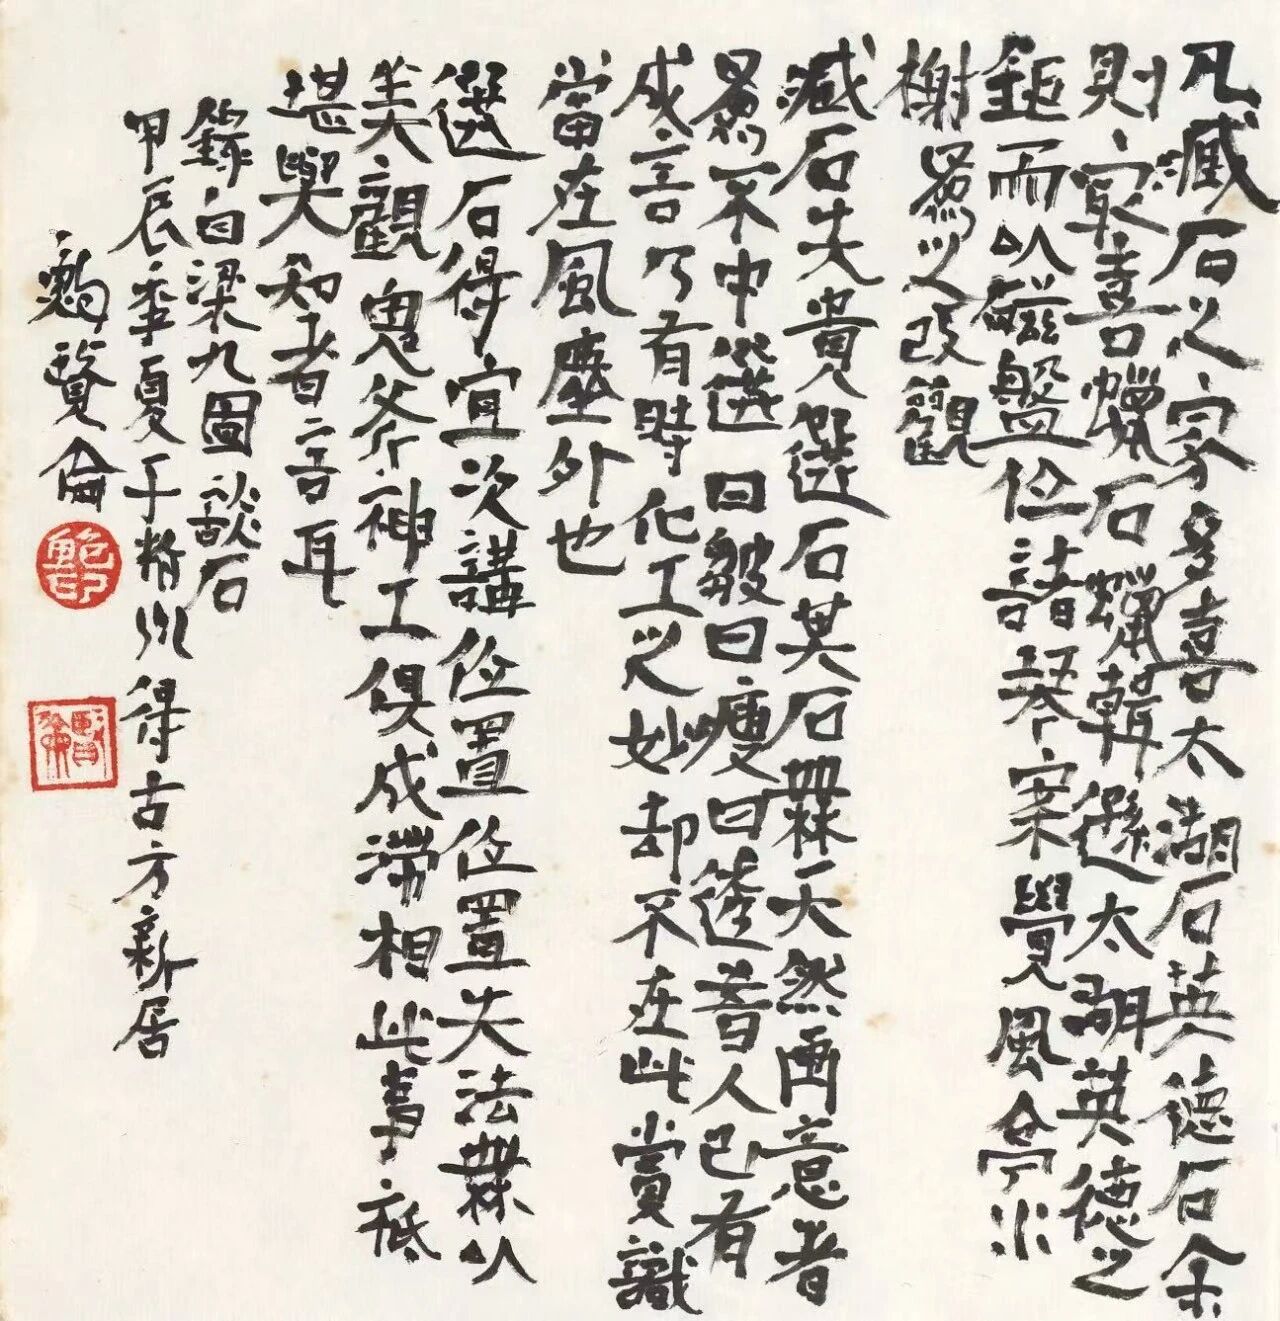 凡藏石之家多喜太湖石英德石余
則冣喜蠟石蠟韓遜太湖英德之
鉅而以磁盤位諸琴案覺風亭水
榭為之改觀
藏石先貴選石其石無一天然画意者
為不中選曰皺曰瘦曰透昔人已有
成言乃有時化工之妙却不在此賞識
當在風塵外也
選石得宜次講位置位置失法無以
美觀鬼斧神工俱成滯相此事祗
堪與知者言耳
錄白梁九圖談石
甲辰季夏于得古方新居
鮑賢倫
鮑印